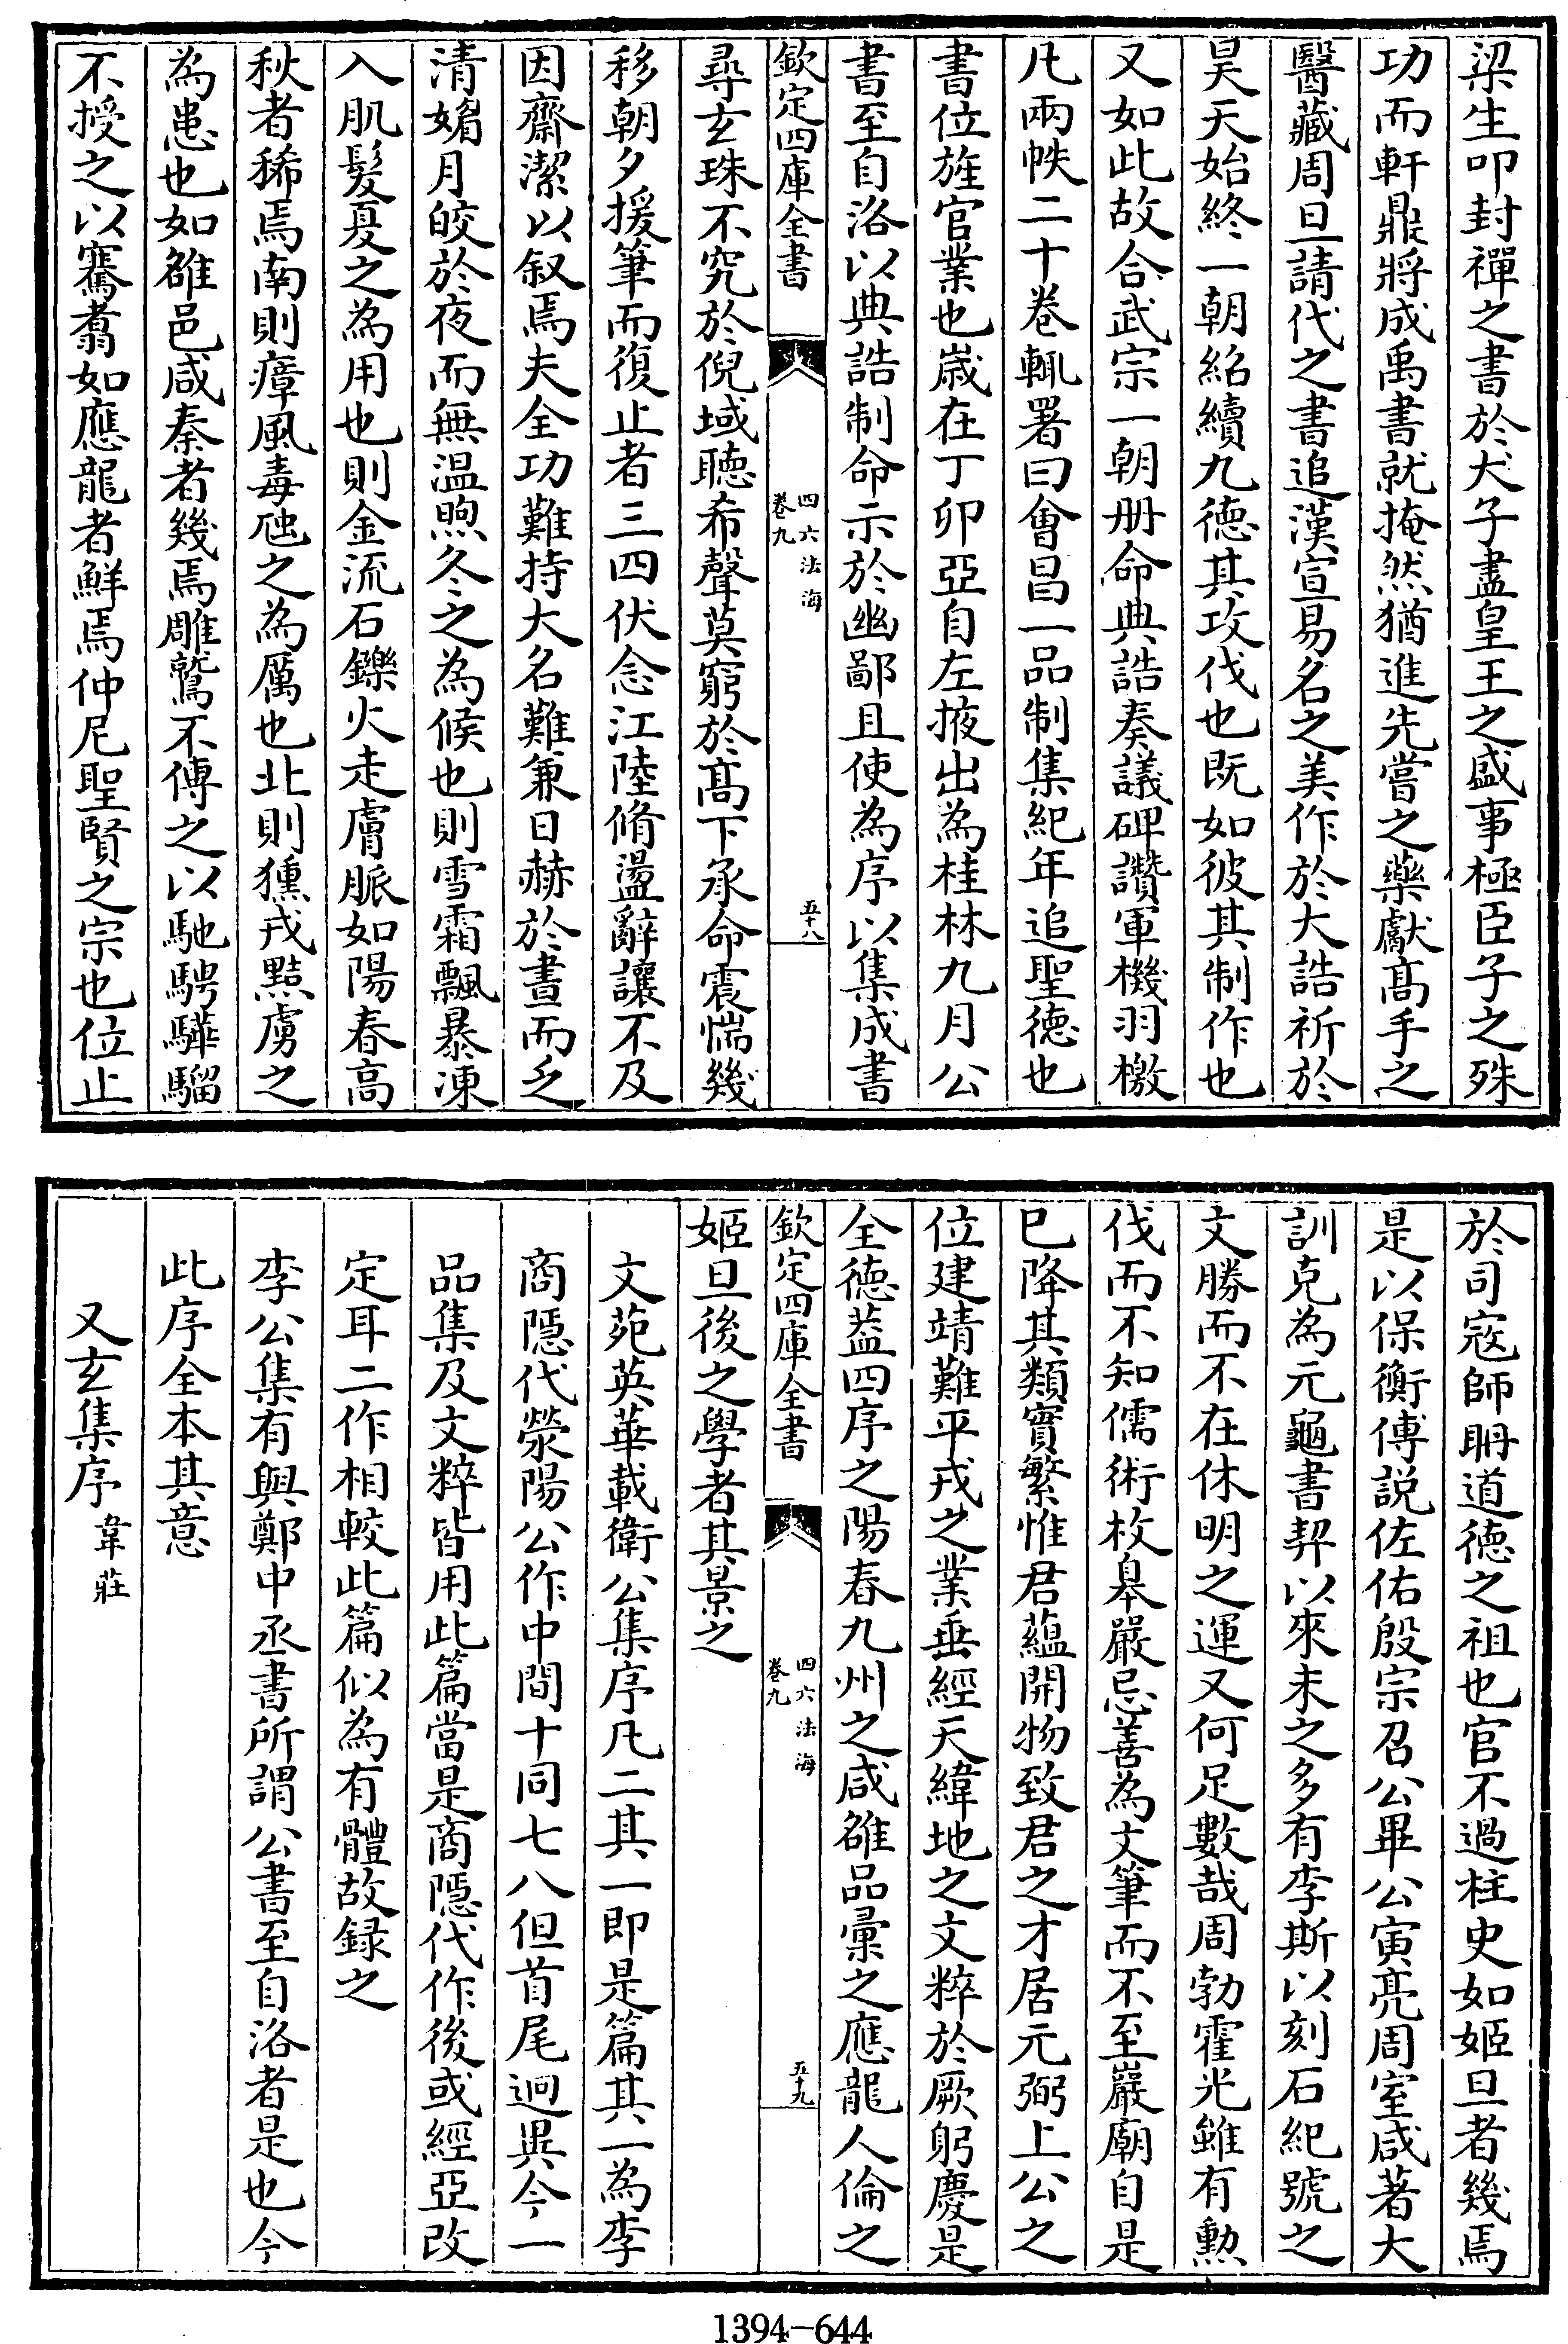 梁生叩封禪之書於犬子盡皇王之盛事極臣子之殊
功而軒鼎將成禹書就掩然猶進先嘗之藥獻髙手之
醫藏周旦請代之書追漢宣易名之美作於大誥祈於
昊天始終一朝紹續九德其攻伐也既如彼其制作也
又如此故合武宗一朝册命典誥奏議碑讚軍機羽檄
凡兩帙二十卷輒署曰會昌一品制集紀年追聖德也
書位旌官業也嵗在丁卯亞自左掖出為桂林九月公
書至自洛以典誥制命示於幽鄙且使為序以集成書
欽定四庫全書
四六法海
卷九
五十八
尋玄珠不究於倪域聽希聲莫窮於髙下承命震惴幾
移朝夕援筆而復止者三四伏念江陸脩盪辭讓不及
因齋潔以叙焉夫全功難持大名難兼日赫於晝而乏
清媚月皎於夜而無温煦冬之為候也則雪霜飄暴凍
入肌髮夏之為用也則金流石鑠火走膚脈如陽春高
秋者稀焉南則瘴風毒虺之為厲也北則獯戎黠虜之
為患也如雒邑咸秦者幾焉雕鷲不傅之以馳騁驊騮
不授之以騫翥如應龍者鮮焉仲尼聖賢之宗也位止
於司寇師聃道德之祖也官不過柱史如姬旦者幾焉
是以保衡傅説佐佑殷宗召公畢公寅亮周室咸著大
訓克為元龜書契以來未之多有李斯以刻石紀號之
文勝而不在休明之運又何足數哉周勃霍光雖有勲
伐而不知儒術枚臯嚴忌善為文筆而不至巖廟自是
已降其類實繁惟君藴開物致君之才居元弼上公之
位建靖難平戎之業垂經天緯地之文粹於厥躬慶是
全德葢四序之陽春九州之咸雒品彚之應龍人倫之
欽定四庫全書
四六法海
卷九
五十九
姬旦後之學者其景之
文苑英華載衛公集序凡二其一即是篇其一為李
商隠代滎陽公作中間十同七八但首尾迥異今一
品集及文粹皆用此篇當是商隠代作後或經亞改
定耳二作相較此篇似為有體故録之
李公集有與鄭中丞書所謂公書至自洛者是也今
此序全本其意
又玄集序 韋莊
1394-644